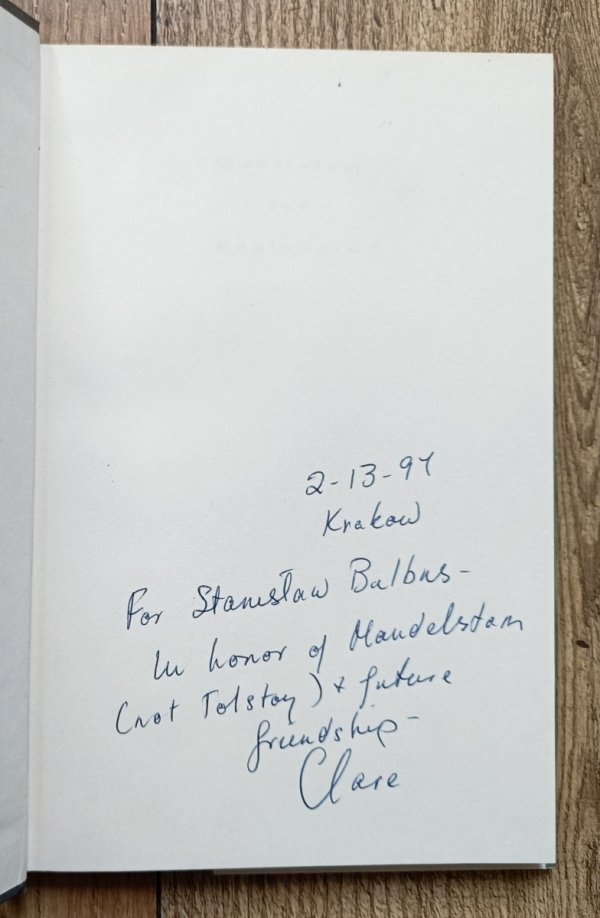 2-13-97
Krakow
For Stanisław Balbus-
In honor of Mandelstam
(not Tolstoy) + future
friendship-
Clare